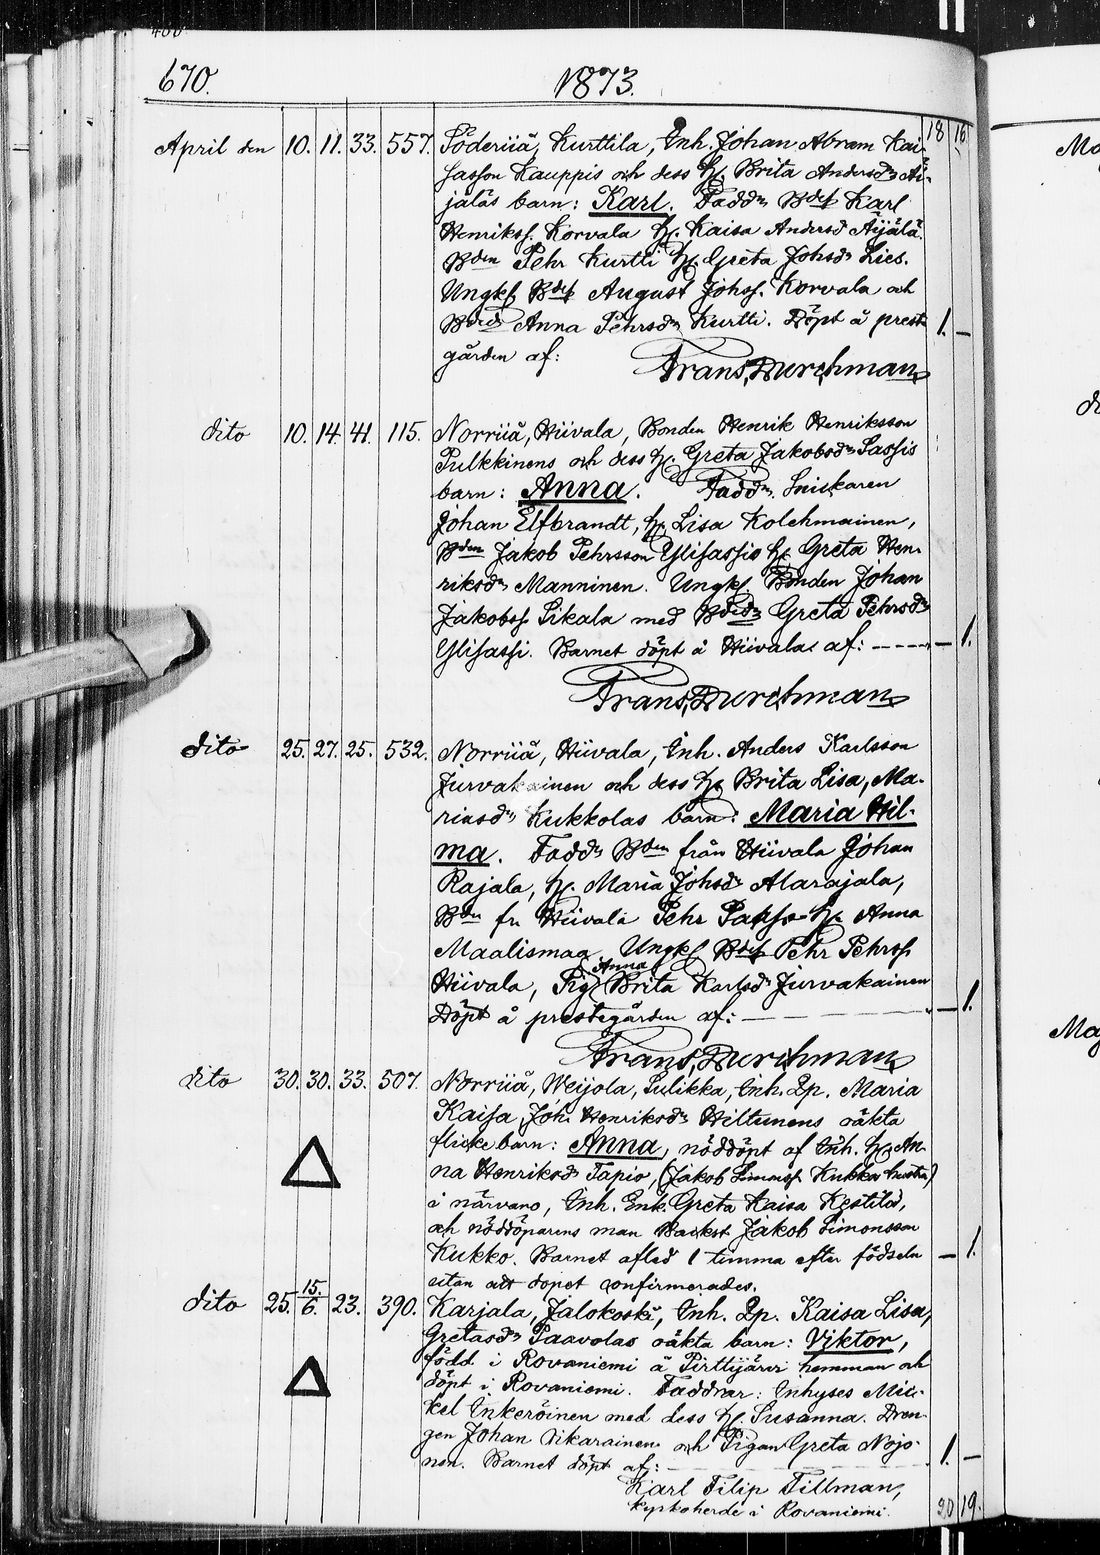 670. 1873.
18 16
April den 10. 11. 33. 557. Söderiiå, Kurttila, Inh. Johan Abram Kai-
sasson Kauppis och dess H. Brita Andersdr Äi-
jäläs barn: Karl. Faddr Bdes Karl
Henrikss. Korvala H. Kaisa Andersd Äijälä.
Bden Pehr Kurtti H. Greta Johsdr Lies.
Ungkl Bdes August Johss. Korvala och
Bdeds Anna Pehrsdr Kurtti. Döpt å prest-
gården af: 1. –
Frans, Durchman
dito 10. 14. 41. 115. Norriiå, Hiivala, Bonden Henrik Henriksson
Pulkkinens och dess H. Greta Jakobsdr Sassis
barn: Anna. Faddr. Snickaren
Johan Elfbrandt, H. Lisa Kolehmainen,
Bden Jakob Pehrsson Ylisassis H. Greta Hen-
riksdr Manninen. Ungkl Bonden Johan
Jakobss. Sikala med Bdeds Greta Pehrsdr
Ylisassi. Barnet döpt å Hiivala af: – 1.
Frans, Durchman
dito 25. 27. 25. 532. Norriiå, Hiivala, Inh. Anders Karlsson
Jurvakainen och dess H. Brita Lisa, Ma-
riasdr Kukkolas barn: Maria Hil-
ma. Faddr Bden från Hiivala Johan
Rajala, H. Maria Johsdr Alarajala,
Bden fr Hiivala Pehr H. Anna
Maalismaa. Ungkl Bdes Pehr Pehrss
Hiivala, Pig Anna Brita Karlsdr Jurvakainen
Döpt å prestegården af: – 1.
Frans, Durchman
dito 30. 30. 33. 507. Norriiå, Weijola, Inh. Lp. Maria
Kaisa, Joh. Henriksdr Hiltunens oäkta
flickebarn: Anna, nöddöpt af Inh. H. An-
na Henriksdr Tapio, (Jakob Simonss Kukko hustru)
i närvaro, Inh. Enk. Greta Kaisa Kestilä,
och nöddöparens man Backst Jakob Simonsson
Kukko. Barnet afled 1 timma efter födseln – 1.
utan att dopet confirmerades.
dito 25. 15/6. 23. 390. Karjala, Jalokoski, Inh. Lp. Kaisa Lisa,
Gretasdr Paavolas oäkta barn: Viktor,
född i Rovaniemi å Pirttijärvi hemman och
döpt i Rovaniemi. Faddrar: Inhyses Mic-
kel Inkeröinen med dess H. Susanna. Dren-
gen Johan Vikarainen och Pigan Greta Nojo-
nen. Barnet döpt af: 1. –
Karl Filip Tillman,
kyrkoherde i Rovaniemi.
20 19.